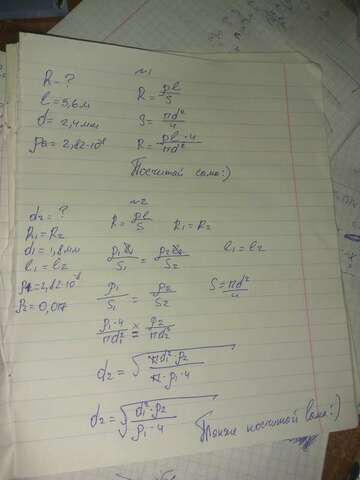 №1
R - ?
l = 5,6м
d = 2,4мм
ρ = 2,82·10⁻⁸
R = ρl/S
S = πd²/4
R = ρl·4/πd²
Посчитай сама:)
№2
d₂ = ?
R₁ = R₂
d₁ = 1,8мм
l₁ = l₂
ρ₁ = 2,82·10⁻⁸
ρ₂ = 0,017
R = ρl/S R₁ = R₂
ρ₁l₁/S₁ = ρ₂l₂/S₂ l₁ = l₂
ρ₁/S₁ = ρ₂/S₂ S = πd²/4
ρ₁·4/πd₁² = ρ₂/πd₂²
d₂ = √(πd₁²·ρ₂/π·ρ₁·4)
d₂ = √(d₁²·ρ₂/ρ₁·4)
посчитай сама:)